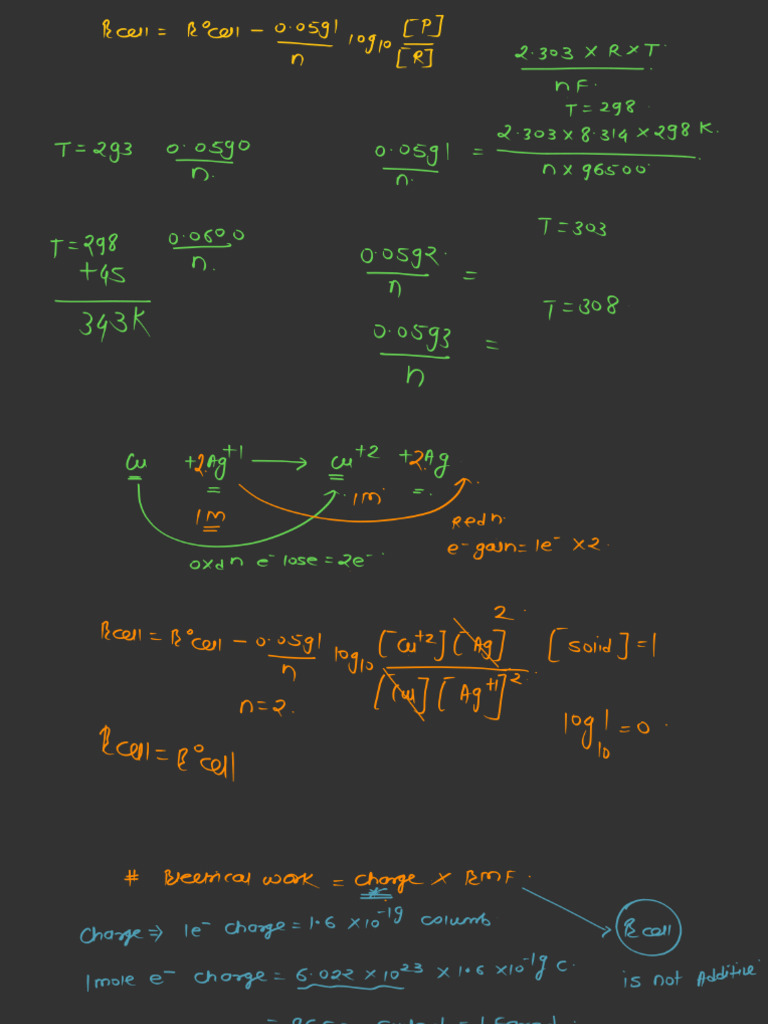 Ecell = E°cell - 0.0591/n log10 [P]/[R]
2.303 × R × T / nF.
T = 298
T = 293 0.0590/n.
0.0591/n. = 2.303 × 8.314 × 298 K. / n × 96500
T = 298 0.0600/n.
+45
343K
T = 303
0.0592/n =
T = 308
0.0593/n =
Cu + 2Ag+1 → Cu+2 + 2Ag
1M 1M
Redn.
oxdn e- lose = 2e-
e- gain = 1e- × 2.
Ecell = E°cell - 0.0591/n log10 [Cu+2][Ag]2 / [Cu][Ag+1]2 [solid] = 1
n = 2.
log10 1 = 0.
Ecell = E°cell
# Electrical work = charge × EMF.
Charge ⇒ 1e- charge = 1.6 × 10-19 columb
Ecell
1 mole e- charge = 6.022 × 1023 × 1.6 × 10-19 C.
is not Additive